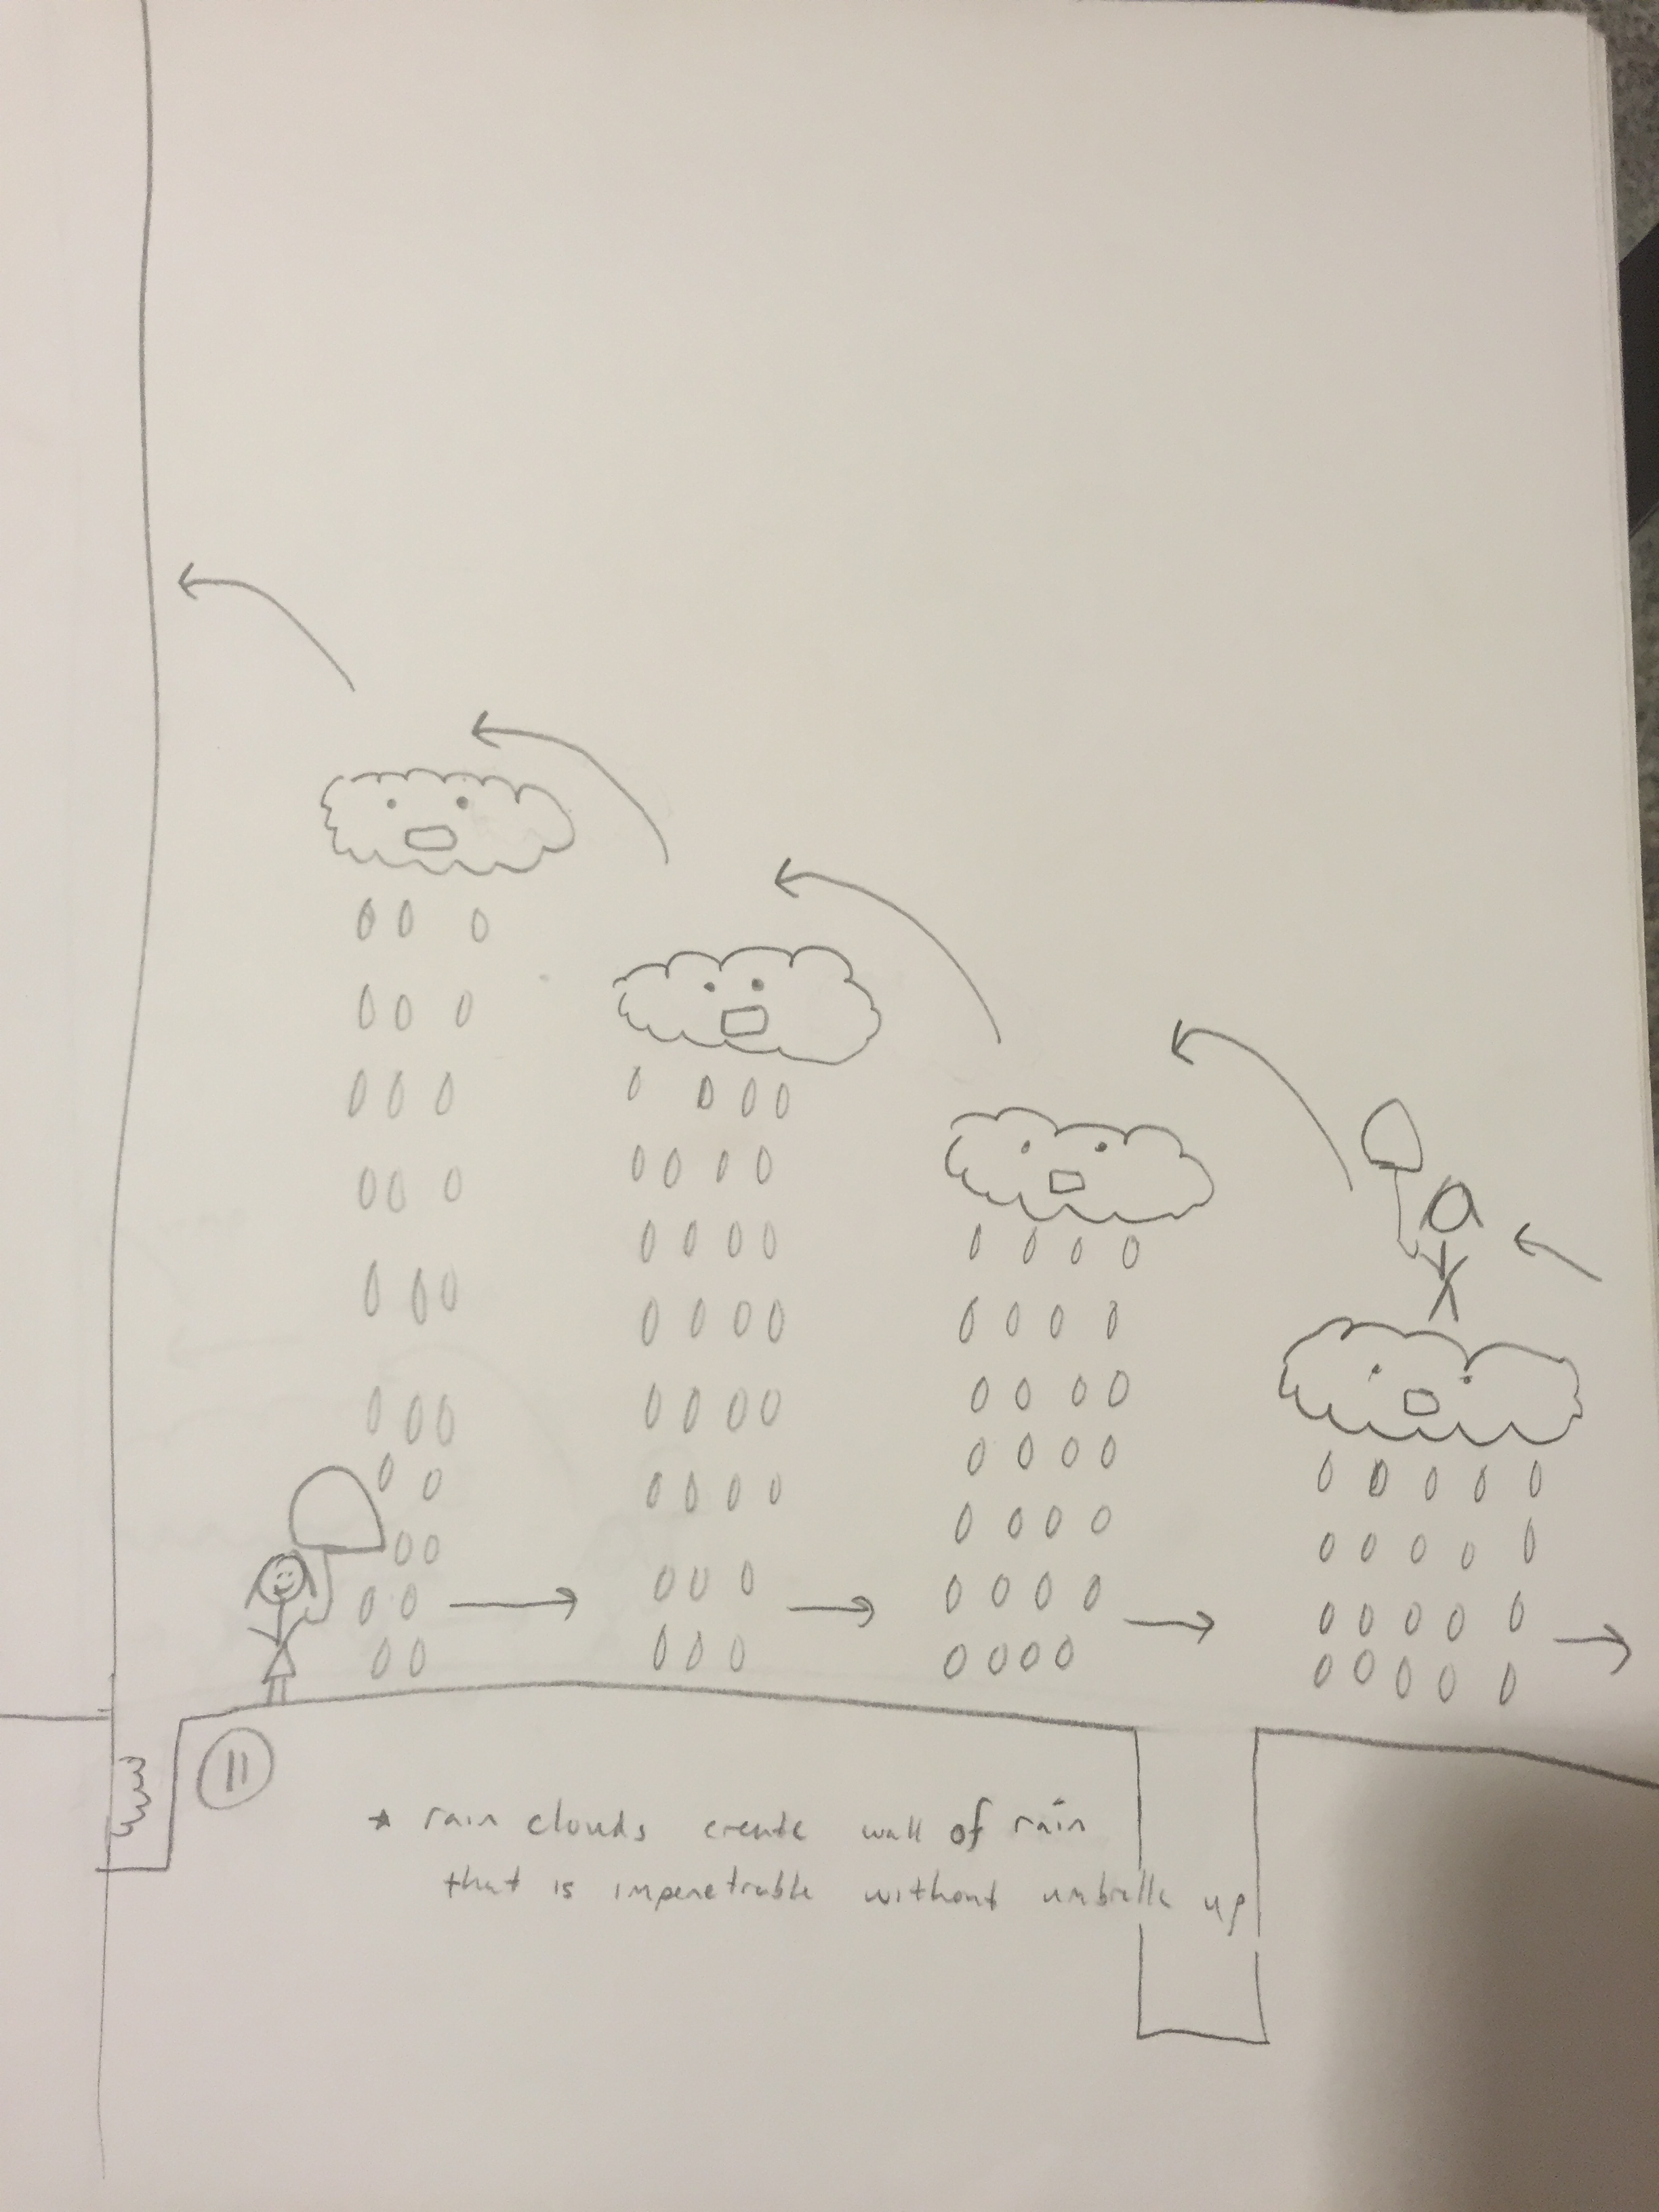 11
* rain clouds create wall of rain
that is impenetrable without umbrella up